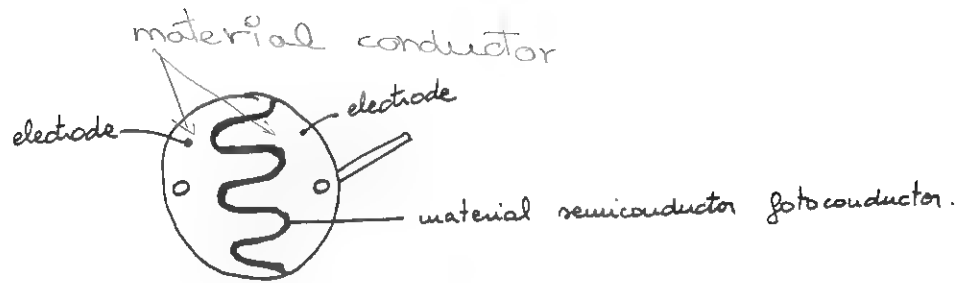 material conductor
electrode
electrode
material semiconductor fotoconductor.